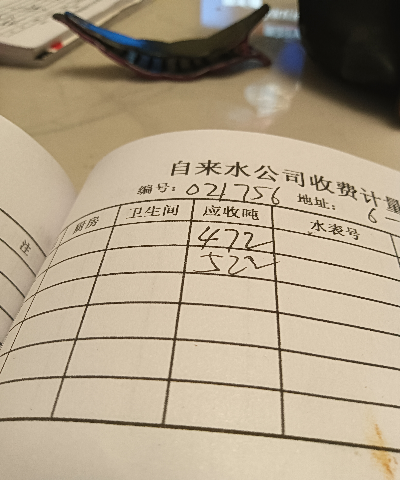 自来水公司收费计量
编号: 021756 地址: 6
注
厨房 卫生间 应收吨 水表号
472
522